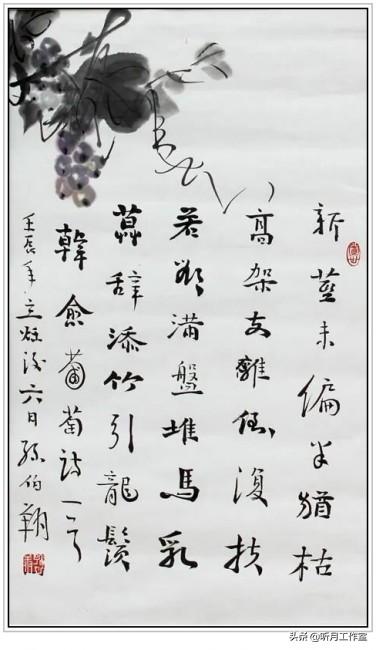 新莖未徧半猶枯
高架支離倒復扶
若欲滿盤堆馬乳
莫辭添竹引龍鬚
韓愈葡萄詩一首
壬辰年立秋後六日孫伯翔
头条 @昕月工作室